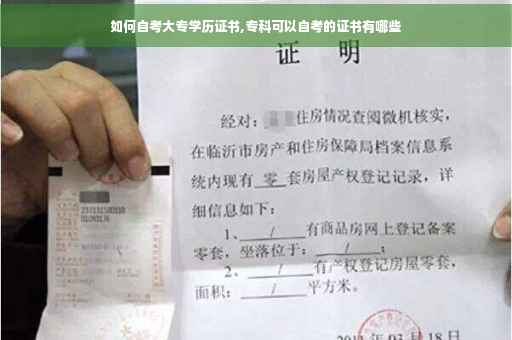 如何自考大专学历证书,专科可以自考的证书有哪些
证 明
经对: 住房情况查阅微机核实,
在临沂市房产和住房保障局档案信息系
统内现有 零 套房屋产权登记记录, 详
细信息如下:
1、 / 有商品房网上登记备案
零套, 坐落位于: / ;
2、 / 有产权登记房屋零套,
面积: / 平方米。
03 月 18 日